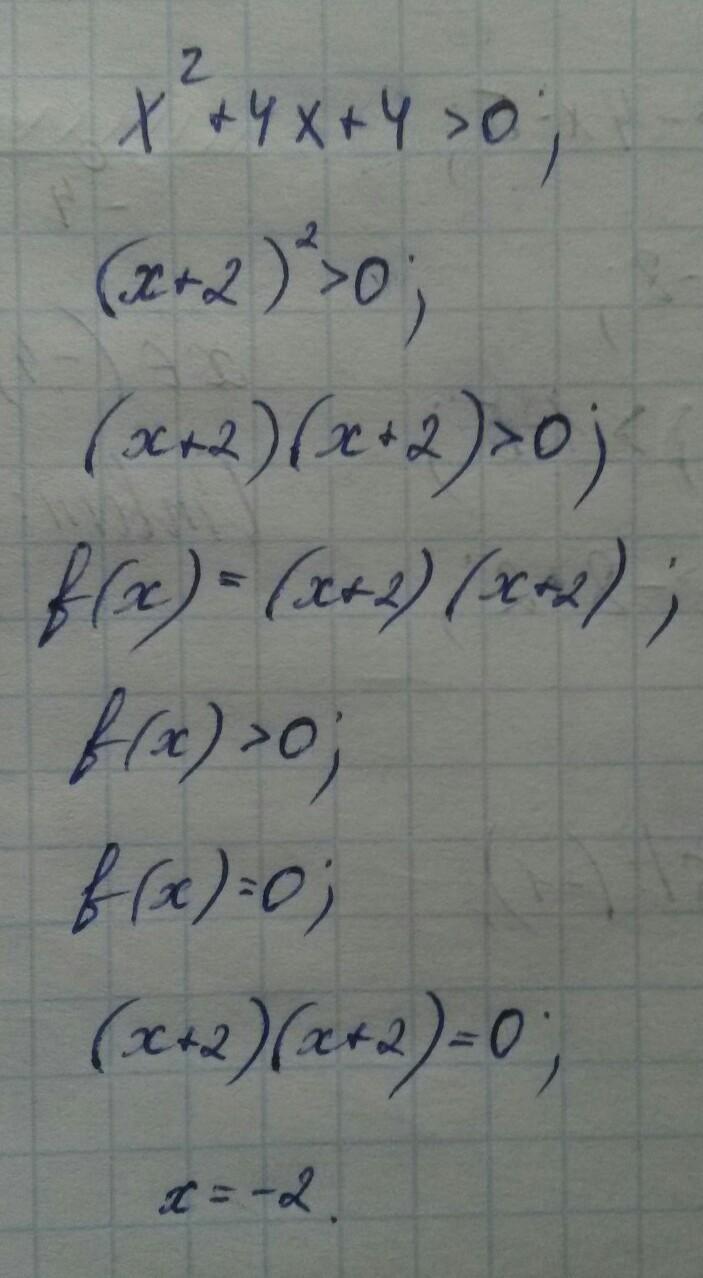 x² + 4x + 4 > 0;
(x+2)² > 0;
(x+2)(x+2) > 0;
f(x) = (x+2)(x+2);
f(x) > 0;
f(x) = 0;
(x+2)(x+2) = 0;
x = -2.